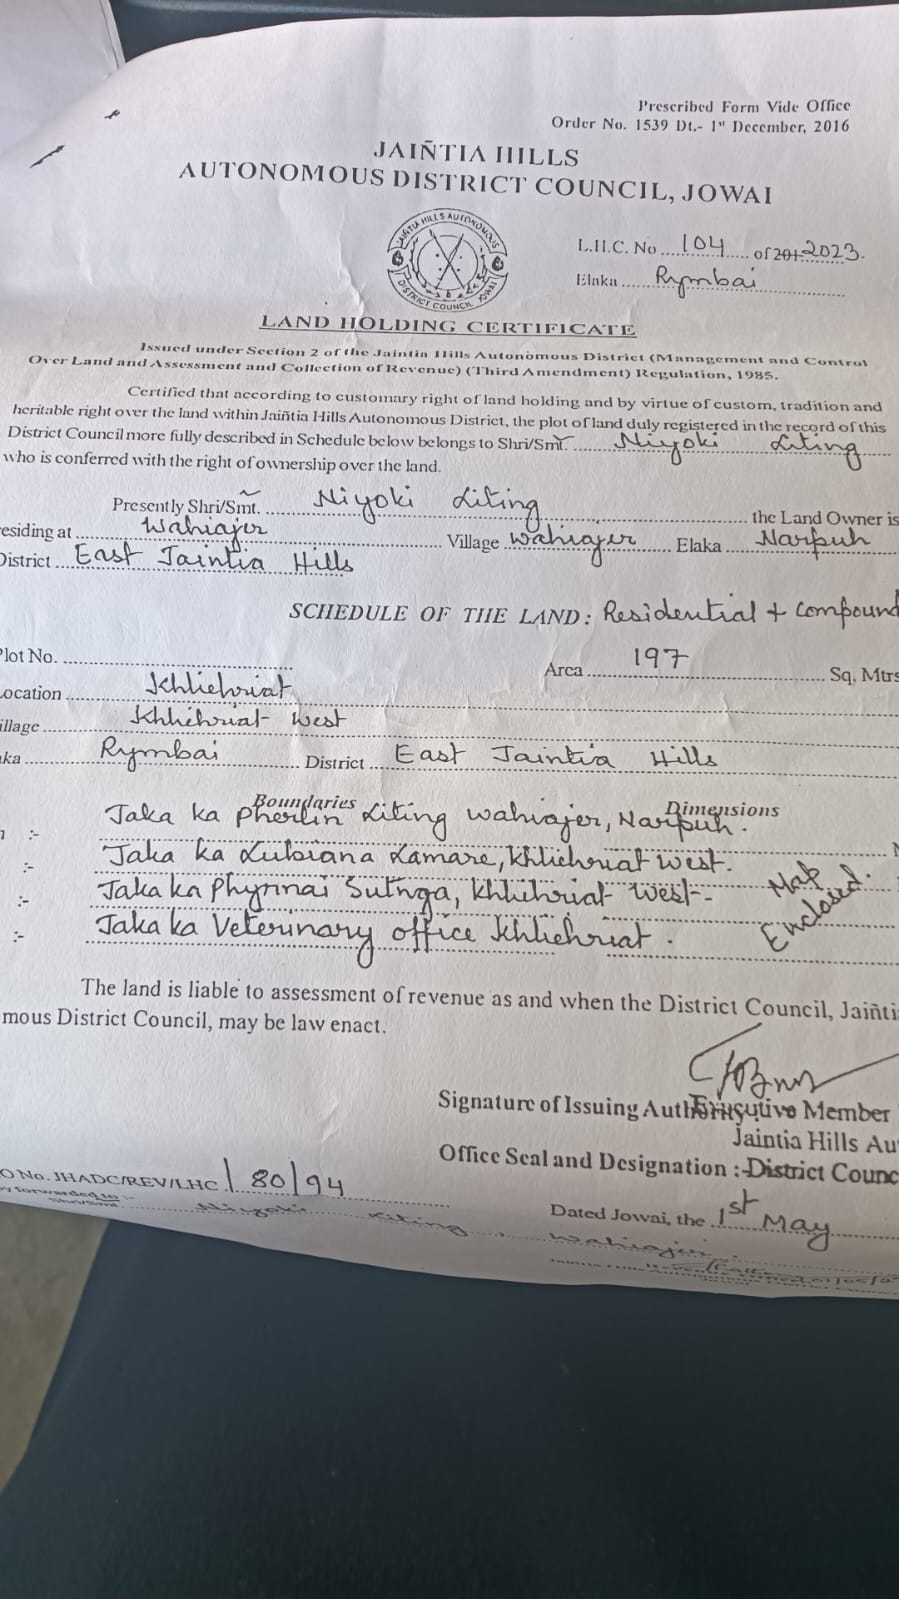 Prescribed Form Vide Office
Order No. 1539 Dt.- 1st December, 2016
JAIÑTIA HILLS
AUTONOMOUS DISTRICT COUNCIL, JOWAI
JAIÑTIA HILLS AUTONOMOUS
DISTRICT COUNCIL JOWAI
L.H.C. No ..... 104 ..... of 201 2023.
Elaka ..... Rymbai .....
LAND HOLDING CERTIFICATE
Issued under Section 2 of the Jaintia Hills Autonomous District (Management and Control
Over Land and Assessment and Collection of Revenue) (Third Amendment) Regulation, 1985.
Certified that according to customary right of land holding and by virtue of custom, tradition and
heritable right over the land within Jaiñtia Hills Autonomous District, the plot of land duly registered in the record of this
District Council more fully described in Schedule below belongs to Shri/Smt. ..... Niyoki Liting .....
who is conferred with the right of ownership over the land.
Presently Shri/Smt. ..... Niyoki Liting ..... the Land Owner is
residing at ..... Wahiajer ..... Village ..... Wahiajer ..... Elaka ..... Narpuh
District ..... East Jaintia Hills
SCHEDULE OF THE LAND: Residential + Compound
Plot No. .....
Area ..... 197 ..... Sq. Mtrs
ocation ..... Khliehriat
illage ..... Khliehriat West
ka ..... Rymbai ..... District ..... East Jaintia Hills
Boundaries Dimensions
:- Jaka ka Pherlin Liting Wahiajer, Narpuh.
:- Jaka ka Lubiana Lamare, Khliehriat West.
:- Jaka ka Phynnai Sutnga, Khliehriat West-
:- Jaka ka Veterinary office Khliehriat.
Map
Enclosed.
The land is liable to assessment of revenue as and when the District Council, Jaiñti
mous District Council, may be law enact.
Signature of Issuing Authority
Executive Member
Jaintia Hills Au
Office Seal and Designation :- District Counc
O No. JHADC/REV/LHC/80/94
Dated Jowai, the ..... 1st May .....
y forwarded to :-
Shri/Smt Niyoki Liting, Wahiajer.